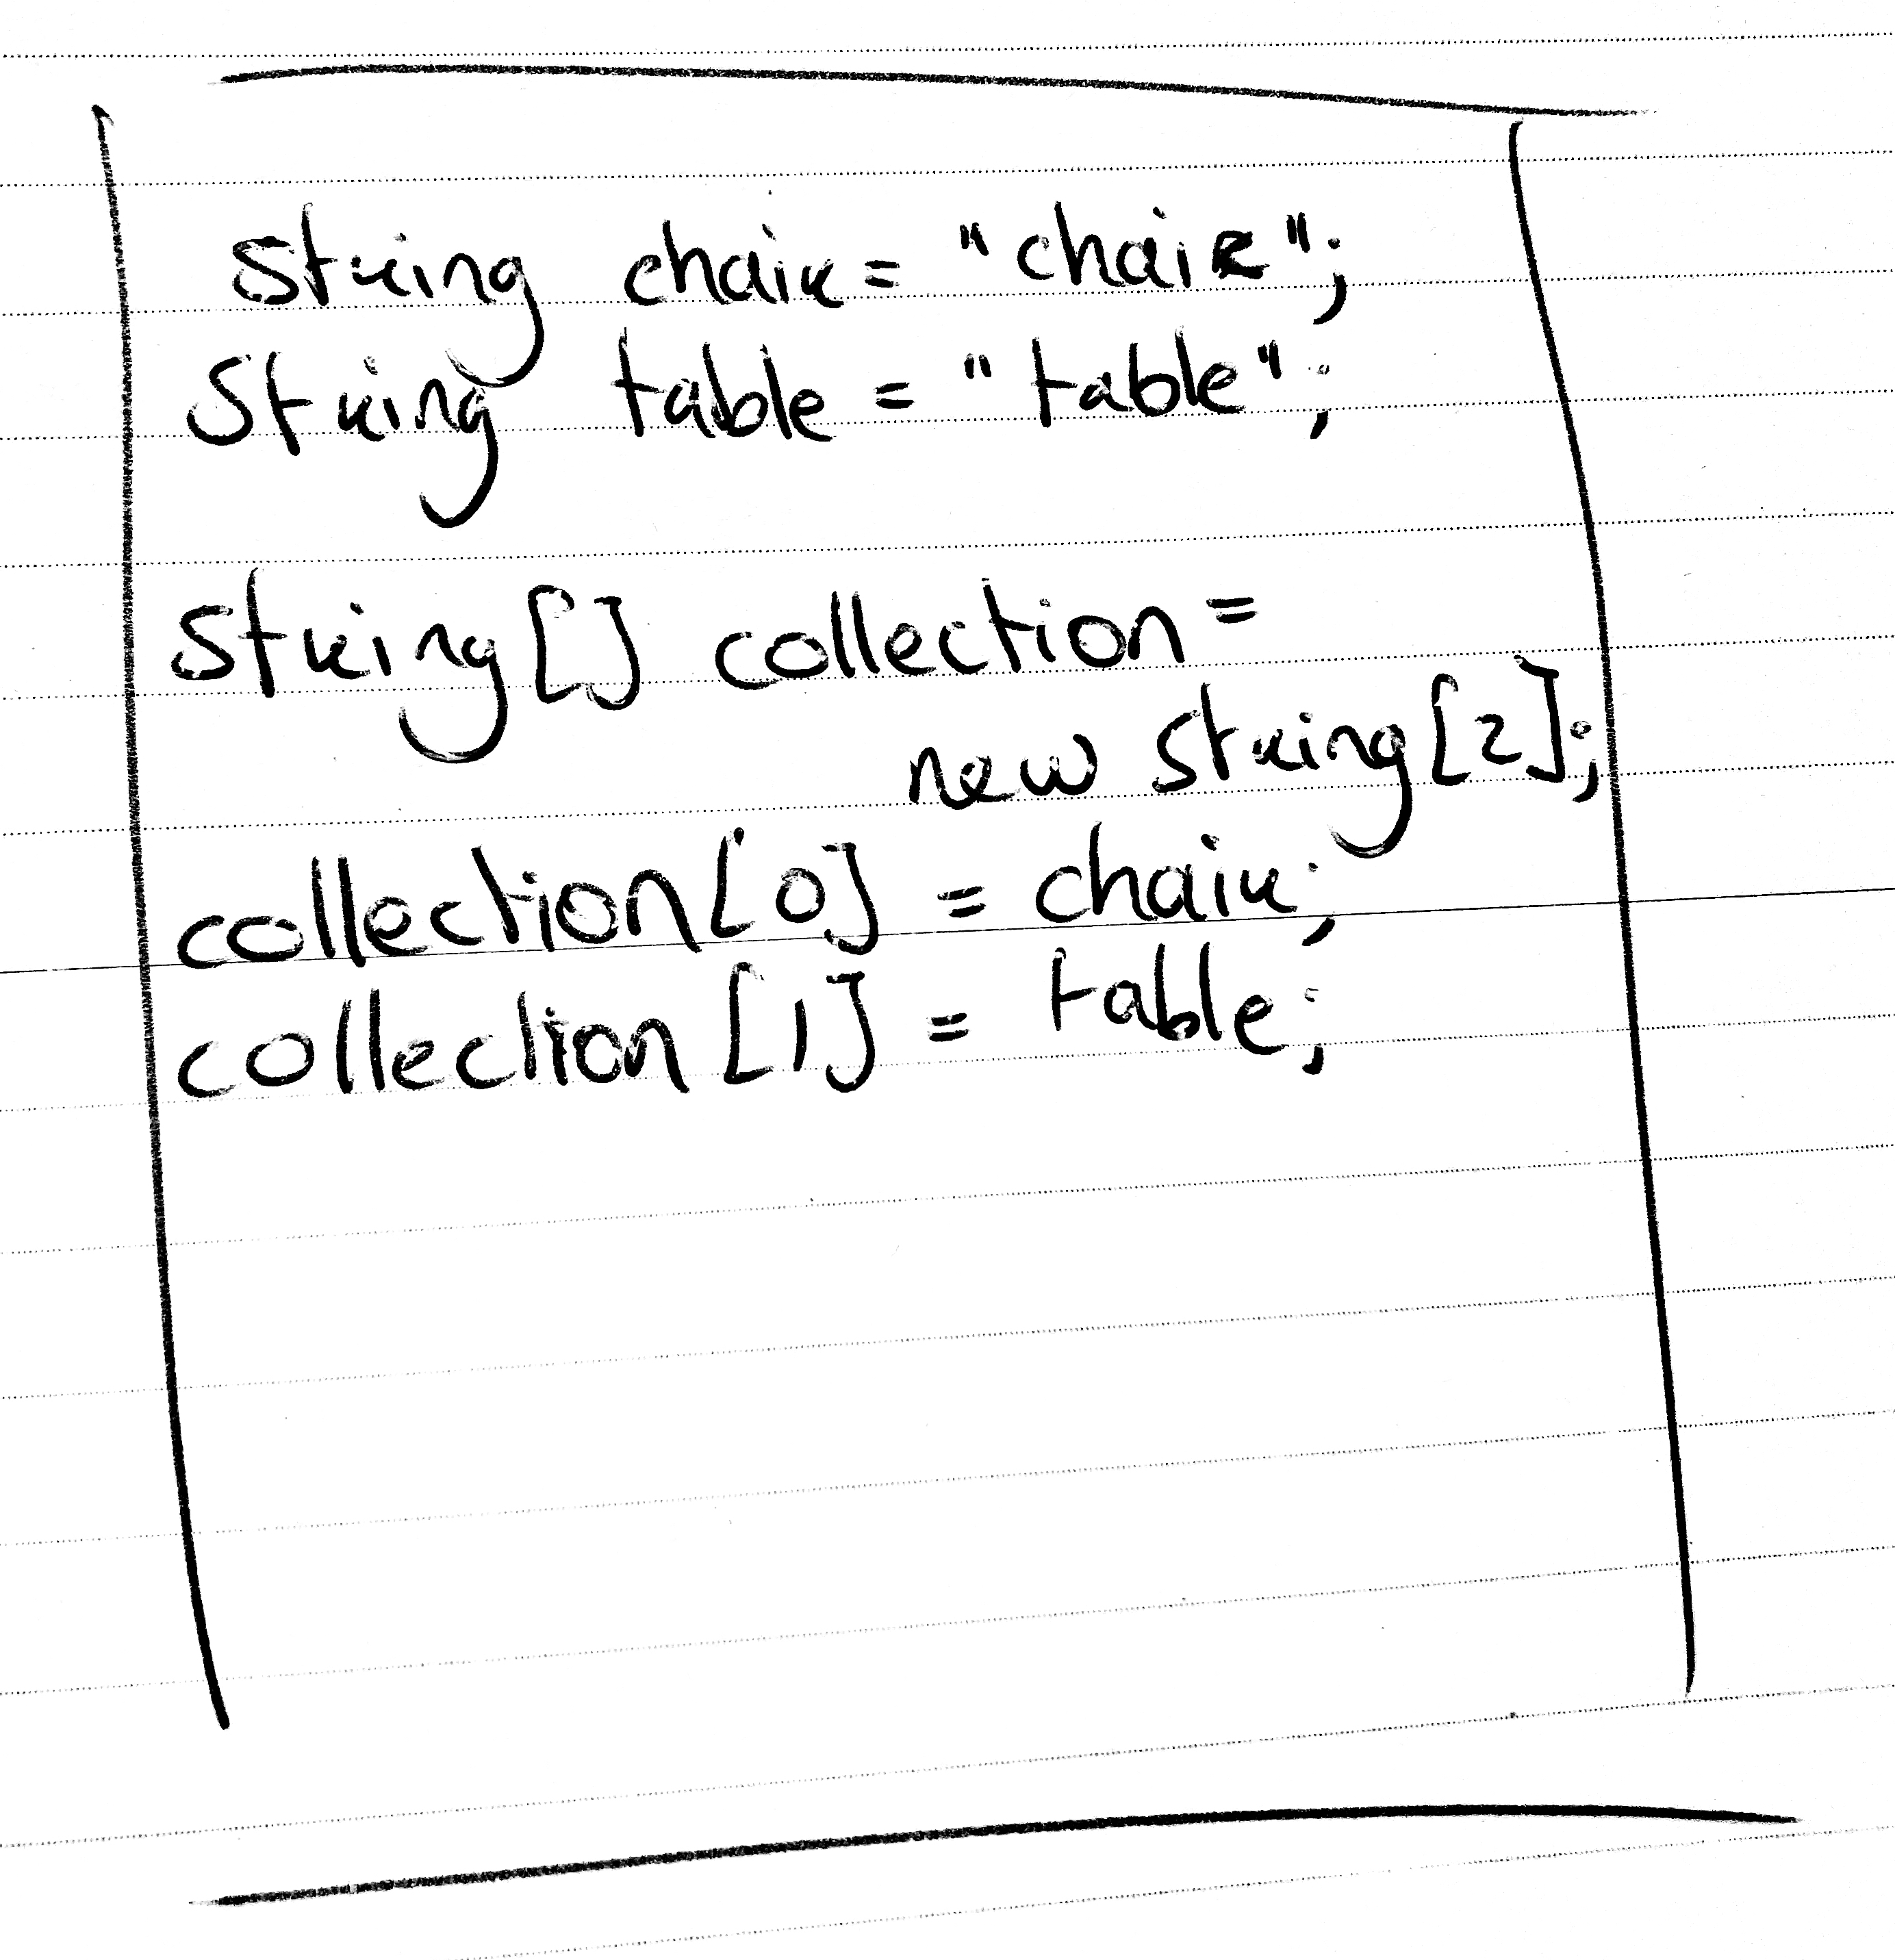 String chair = "chair";
String table = "table";
String[] collection =
new String[2];
collection[0] = chair;
collection[1] = table;